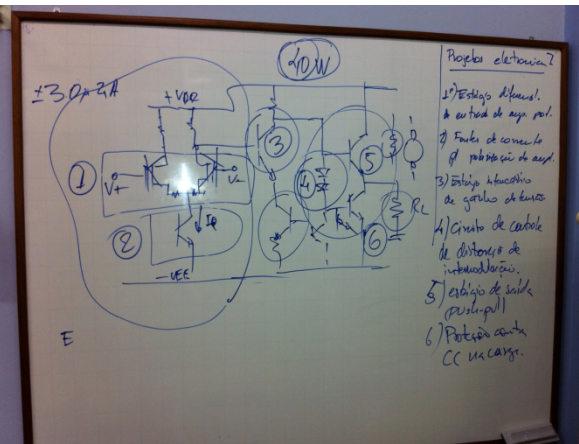 40W
±30V 2A
+VDD
1
V+
V-
2
IQ
-VEE
3
4
5
6
RL
E
Projetos eletronica 2
1º) Estágio diferencial
de entrada de
2) Fontes de corrente
p/ polarização do ampl.
3) Estágio
de ganho de tensão
4) Circuito de controle
de distorção de
intermodulação.
5) estágio de saída
push-pull
6) Proteção contra
CC na carga.